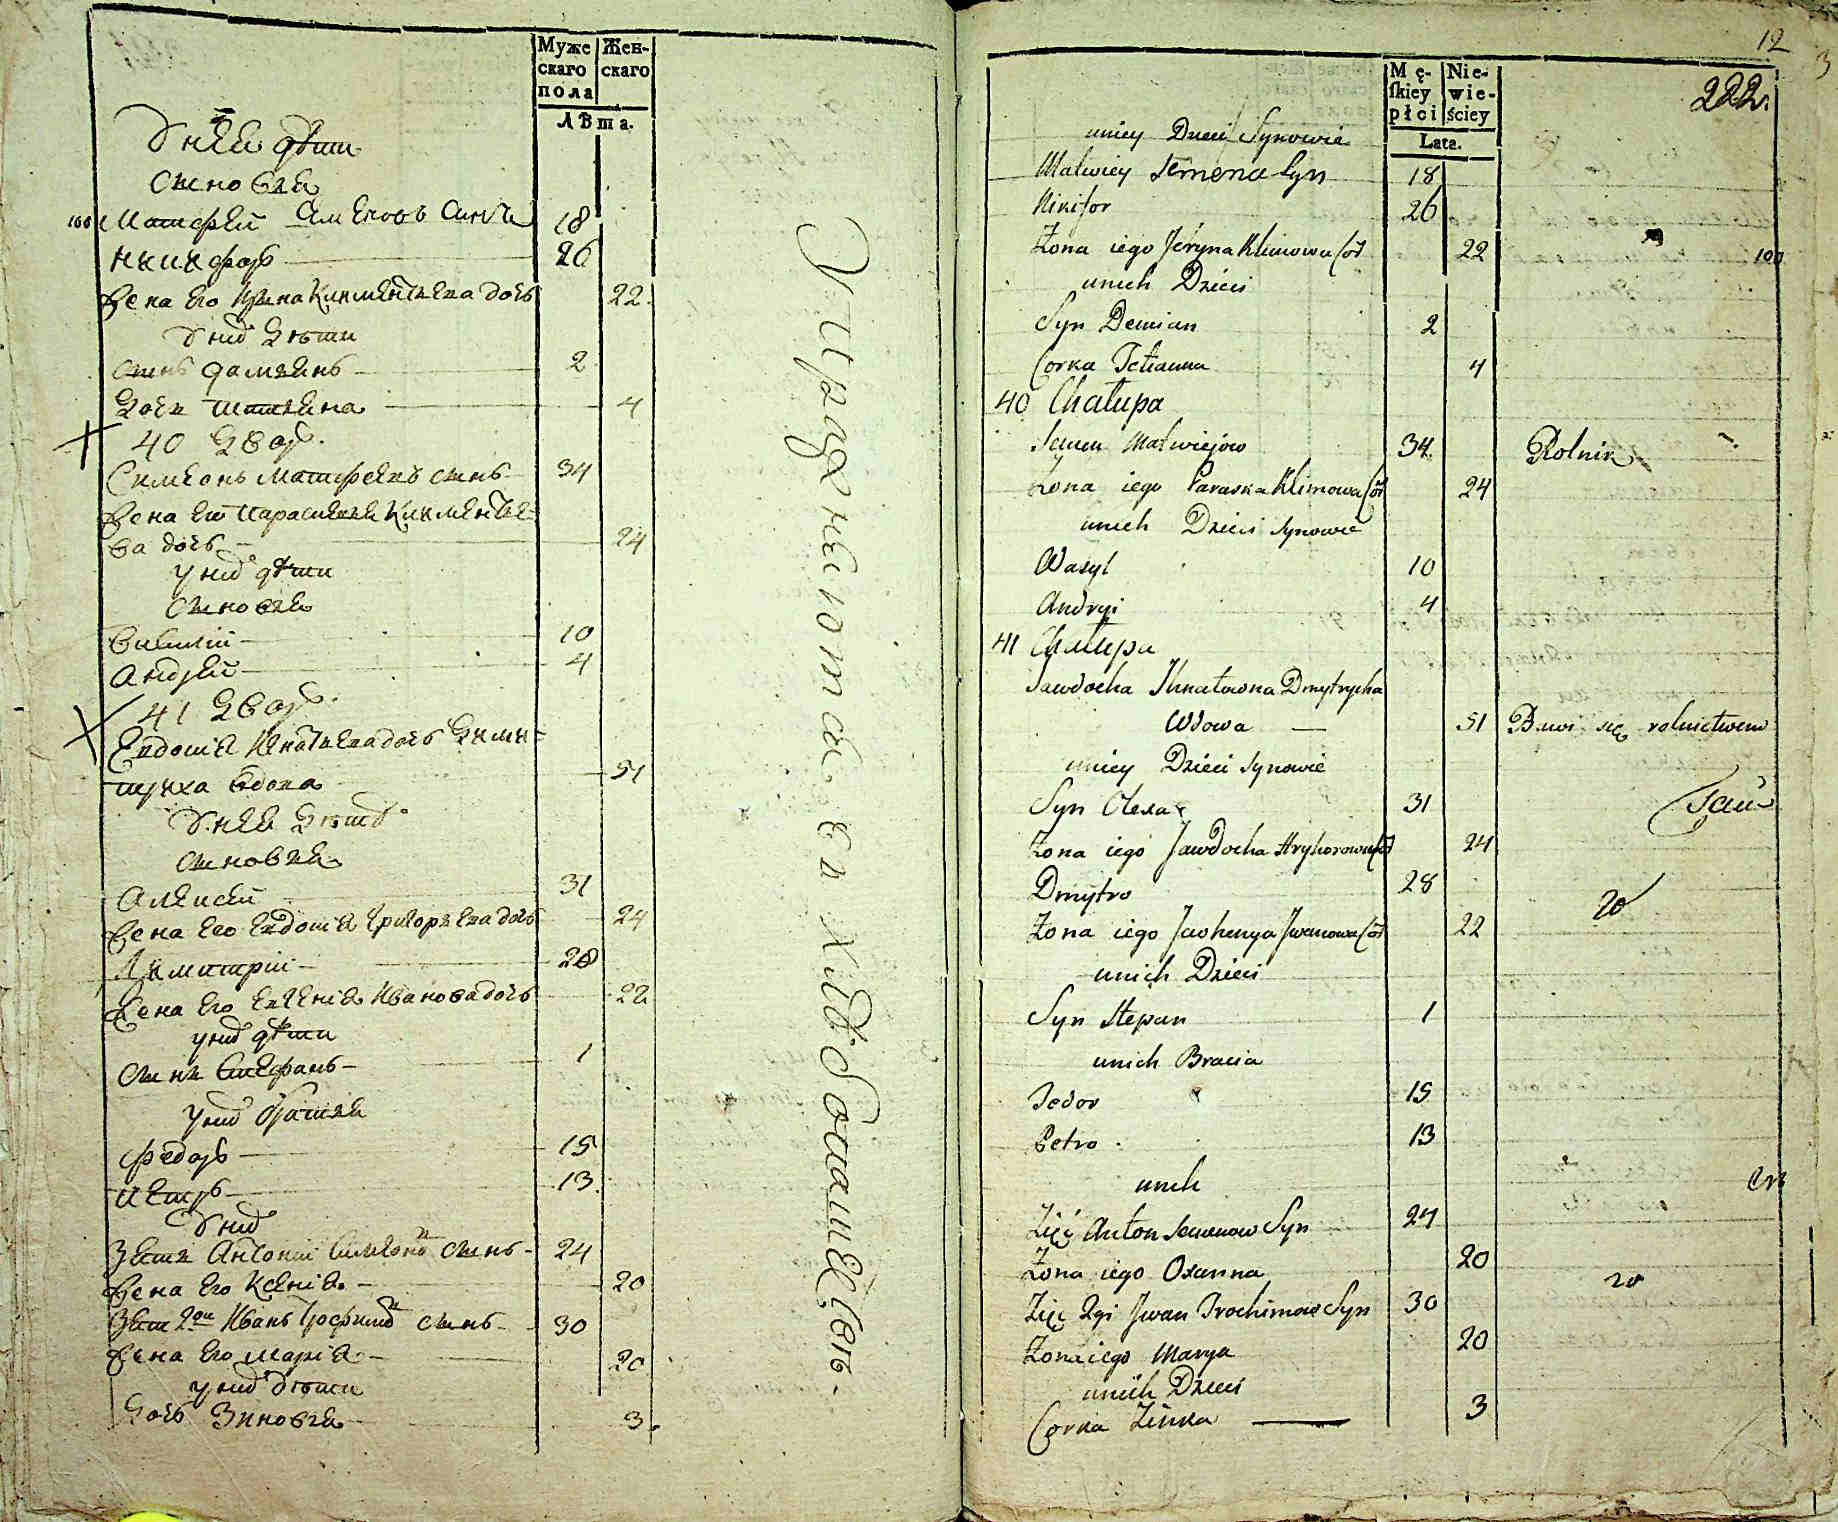 Муже Жен-
скаго скаго
пола
Лѣта.
У нея дѣти
сыновья
Матфей Симеоновъ сынъ 18
Никифоръ 26
Жена его Ирина Климентьева дочь 22.
У нихъ дѣти
сынъ Дамианъ 2
Дочь Татиана 4
40 Дворъ.
Симеонъ Матфеевъ сынъ 34
Жена его Параскева Климентье-
ва дочь 24
У нихъ дѣти
сыновья
Василій 10
Андрей 4
41 Дворъ.
Евдокія Игнатьева дочь Дими-
триха вдова 51
У нея дѣти
сыновья
Алексей 31
Жена его Евдокія Григорьева дочь 24
Димитрій 28
Жена его Евгенія Иванова дочь 22
У нихъ дѣти
сынъ Стефанъ 1
У нихъ братья
Федоръ 15
Петръ 13.
У нихъ
Зять Антоній Симеоновъ сынъ 24
Жена его Ксенія 20
Зять 2ой Иванъ Трофимовъ сынъ 30
Жена его Марія 20
У нихъ дѣти
Дочь Зиновья 3.
Упражняются въ хлѣбопашествѣ.
12
222.
Mę- Nie-
ſkiey wie-
płci ściey
Lata.
uniey Dzieci Synowie
Matwiey Semena Syn 18
Nikifor 26
Żona iego Jeryna Klimowa Cór 22
unich Dzieci
Syn Demian 2
Corka Tetianna 4
40 Chałupa
Semen Matwiejow 34. Rolnik
Żona iego Paraska Klimowa Cór 24
unich Dzieci Synowie
Wasyl 10
Andryi 4
41 Chałupa
Jawdocha Ihnatowna Dmytrycha
Wdowa — 51 Bawi się rolnictwem
uniey Dzieci Synowie
Syn Olexa 31
Żona iego Jawdocha Hryhorowna Cór 24
Dmytro 28
Żona iego Jewhenya Jwanowa Cór 22
unich Dzieci
Syn Stepan 1
unich Bracia
Fedor 15
Petro 13
unich
Zięć Anton Semenow Syn 24
Żona iego Oxanna 20
Zięć 2gi Jwan Trochimow Syn 30
Żona iego Marya 20
unich Dzieci
Corka Zinka 3